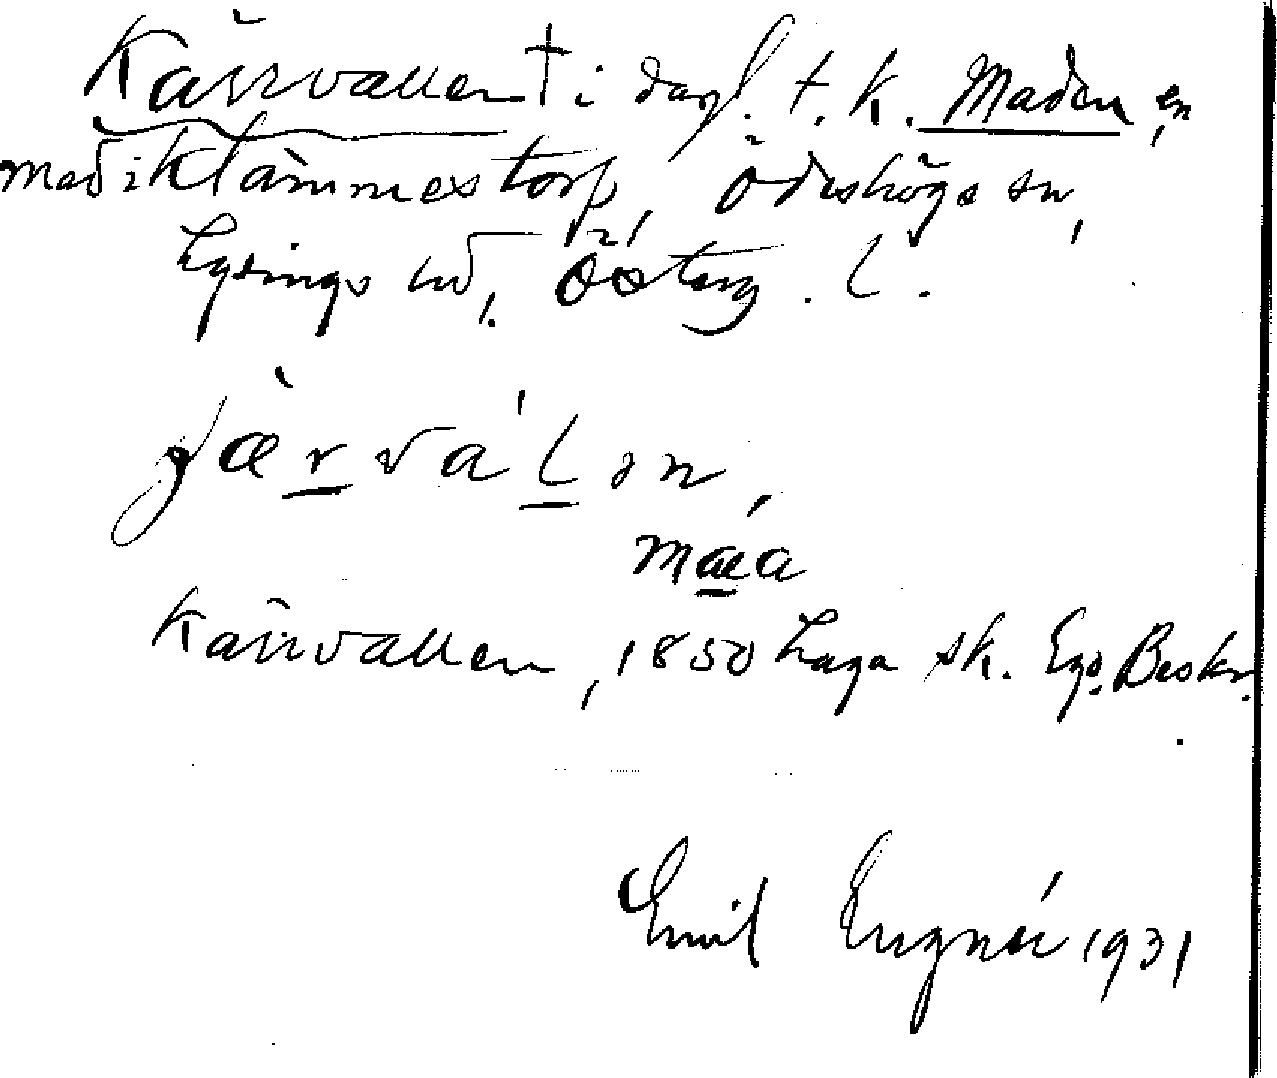 Kärrvallen † i dagl. t. k. Maden, en
mad i Klämmestorp, Ödeshögs sn,
Lysings hd, Österg. L.
çærvalən,
mæa
Kärrvallen, 1850 Laga sk. Egs. Beskr.
Emil 1931